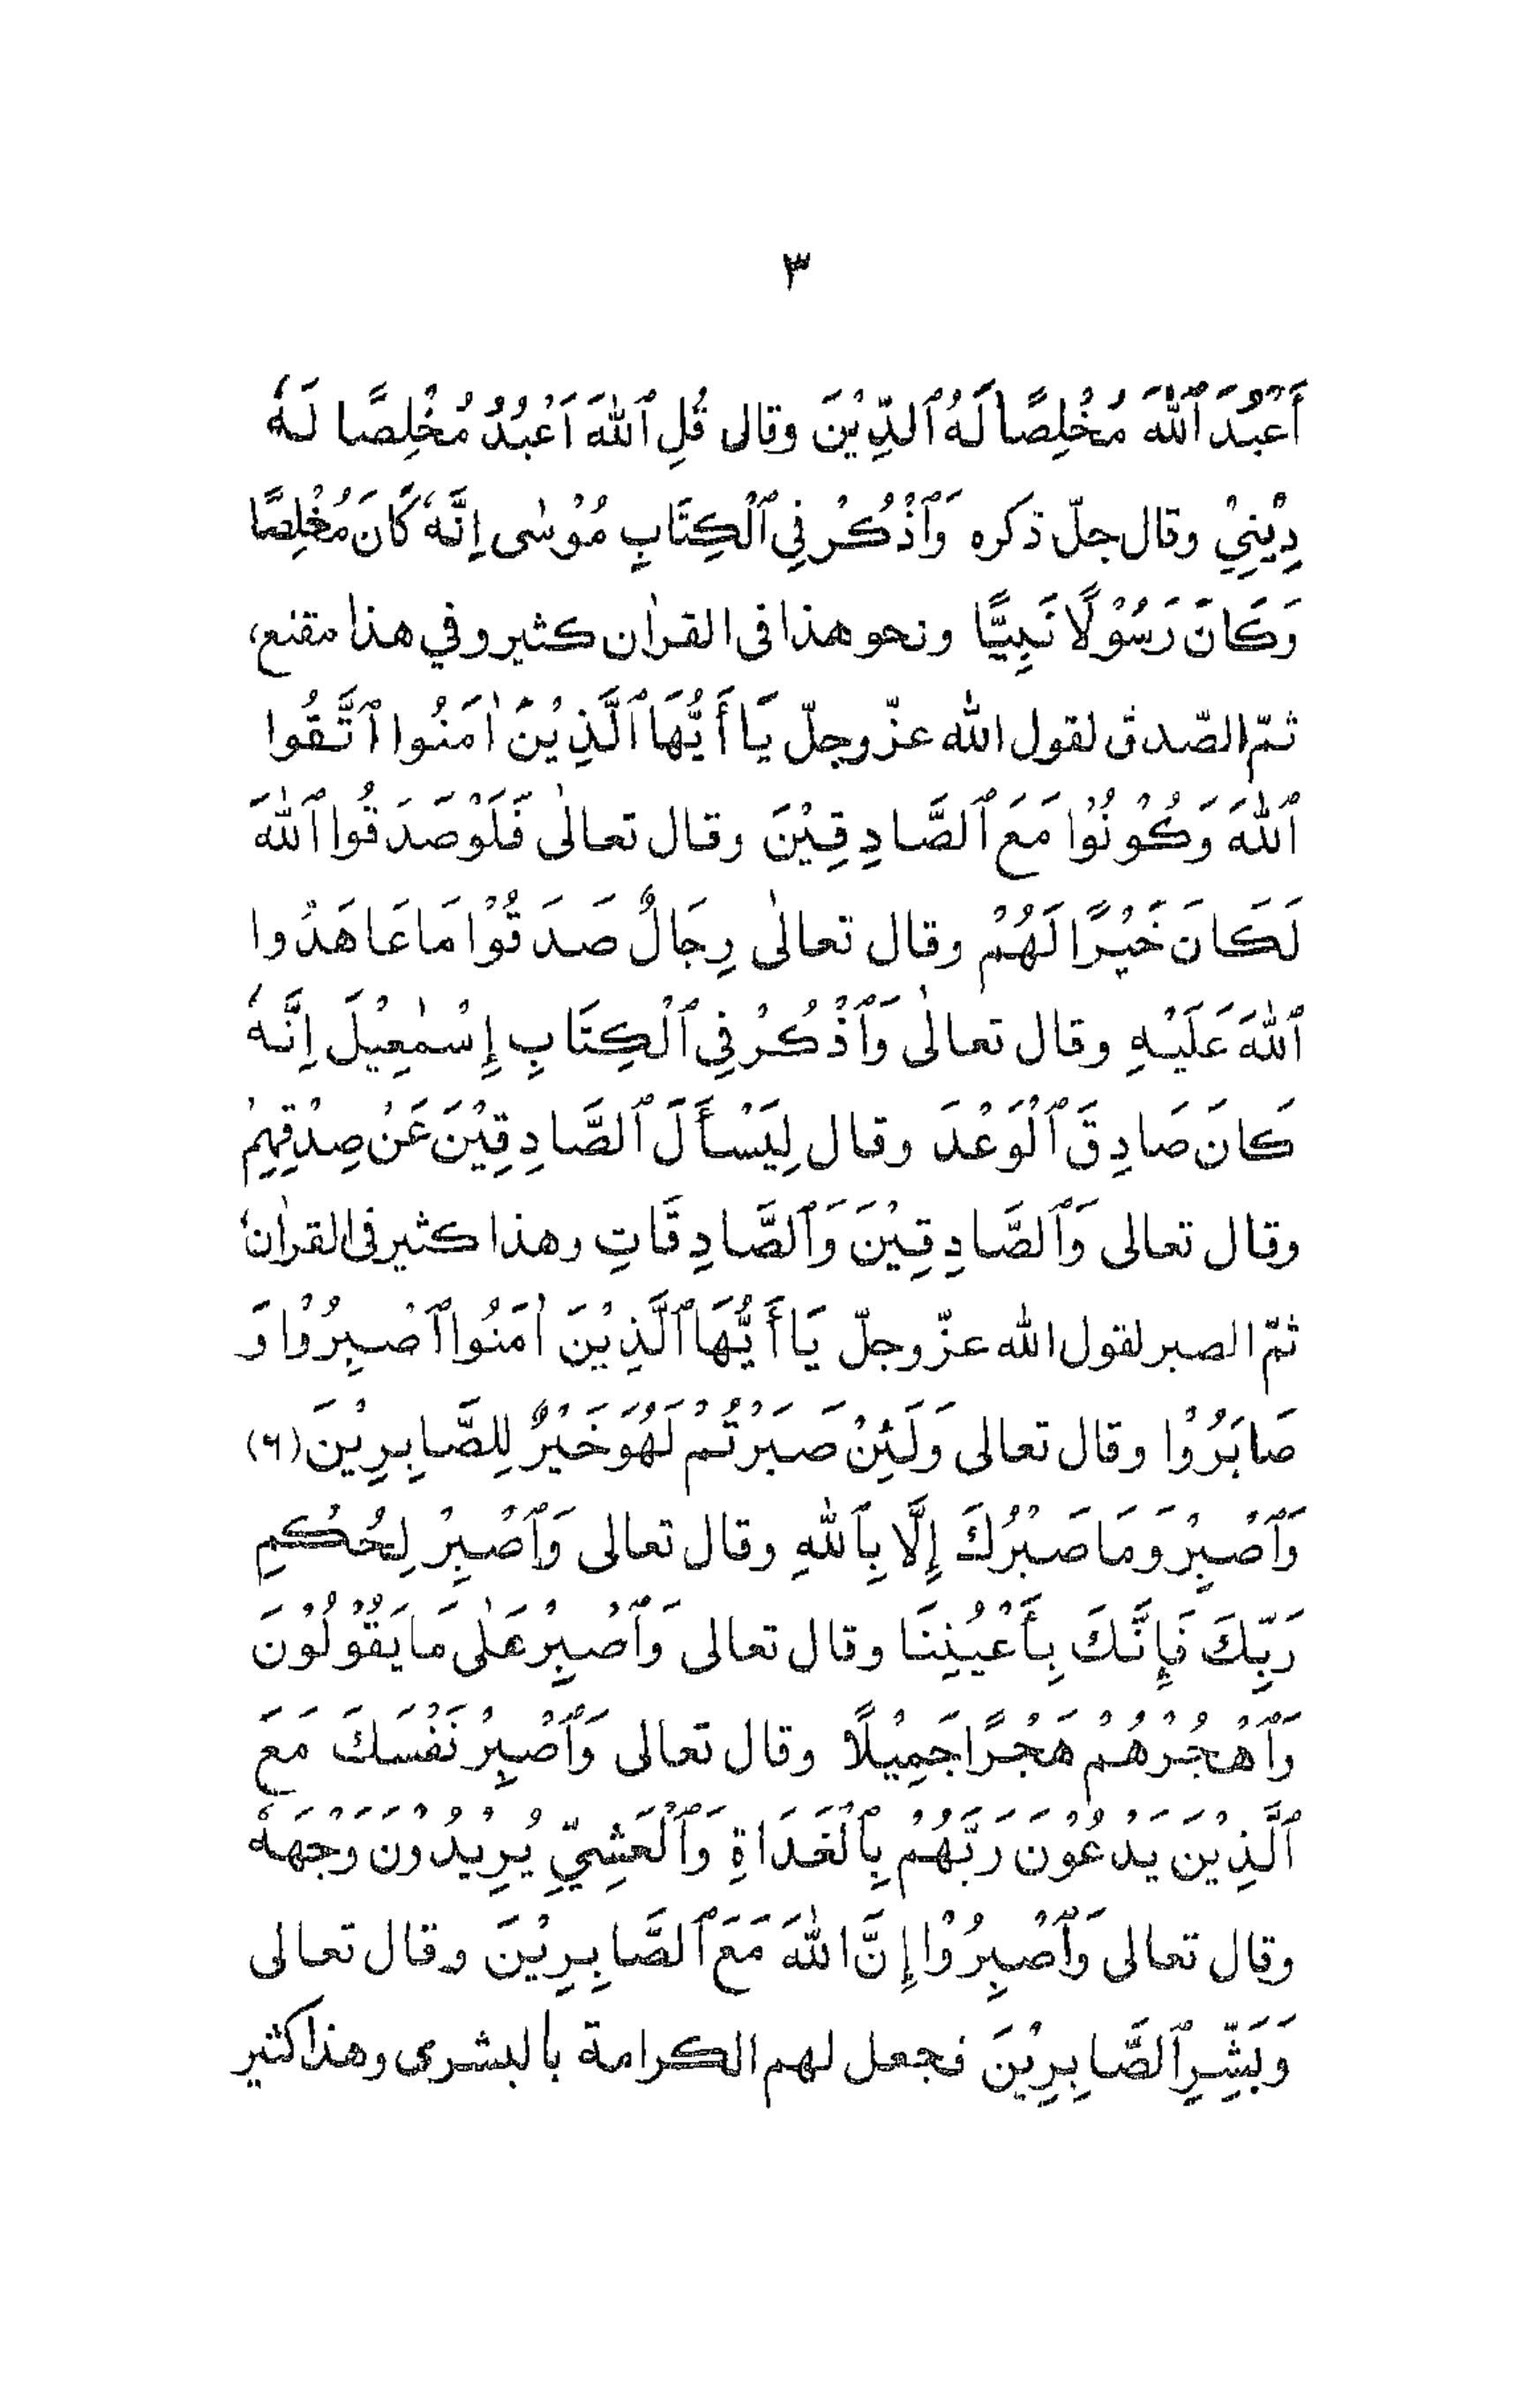 ٣
أَعْبُدَ ٱللّٰهَ مُخْلِصًا لَهُ ٱلدِّيْنَ وقال قُلِ ٱللّٰهَ اَعْبُدُ مُخْلِصًا لَهٗ
دِيْنِيْ وقال جلّ ذكره وَٱذْكُرْ فِي ٱلْكِتَابِ مُوْسٰى اِنَّهٗ كَانَ مُخْلِصًا
وَكَانَ رَسُوْلًا نَبِيًّا ونحو هذا فى القرٰان كثير وفي هذا مقنع،
ثمّ الصّدق لقول الله عزّ وجلّ يَا أَيُّهَا ٱلَّذِيْنَ اٰمَنُوا ٱتَّقُوا
ٱللّٰهَ وَكُوْنُوْا مَعَ ٱلصَّادِقِيْنَ وقال تعالٰى فَلَوْ صَدَقُوا ٱللّٰهَ
لَكَانَ خَيْرًا لَهُمْ وقال تعالٰى رِجَالٌ صَدَقُوْا مَا عَاهَدُوا
ٱللّٰهَ عَلَيْهِ وقال تعالٰى وَٱذْكُرْ فِي ٱلْكِتَابِ إِسْمٰعِيْلَ اِنَّهٗ
كَانَ صَادِقَ ٱلْوَعْدَ وقال لِيَسْأَلَ ٱلصَّادِقِيْنَ عَنْ صِدْقِهِمْ
وقال تعالى وَٱلصَّادِقِيْنَ وَٱلصَّادِقَاتِ وهذا كثير فى القرٰان،
ثمّ الصبر لقول الله عزّ وجلّ يَا أَيُّهَا ٱلَّذِيْنَ اٰمَنُوا ٱصْبِرُوْا وَ
صَابَرُوْا وقال تعالى وَلَئِنْ صَبَرْتُمْ لَهُوَ خَيْرٌ لِلصَّابِرِيْنَ (٦)
وَٱصْبِرْ وَمَا صَبْرُكَ إِلَّا بِٱللّٰهِ وقال تعالى وَٱصْبِرْ لِحُكْمِ
رَبِّكَ فَإِنَّكَ بِأَعْيُنِنَا وقال تعالى وَٱصْبِرْ عَلٰى مَا يَقُوْلُوْنَ
وَٱهْجُرْهُمْ هَجْرًا جَمِيْلًا وقال تعالى وَٱصْبِرْ نَفْسَكَ مَعَ
ٱلَّذِيْنَ يَدْعُوْنَ رَبَّهُمْ بِٱلْغَدَاةِ وَٱلْعَشِيِّ يُرِيْدُوْنَ وَجْهَهٗ
وقال تعالى وَٱصْبِرُوْا إِنَّ اللّٰهَ مَعَ ٱلصَّابِرِيْنَ وقال تعالى
وَبَشِّرِ ٱلصَّابِرِيْنَ فجعل لهم الكرامة بالبشرى وهذا كثير